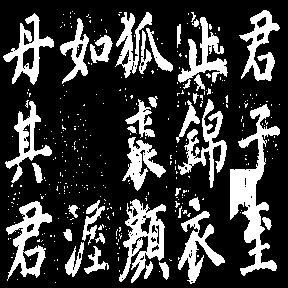 君子至
止錦衣
狐裘顏
如渥
丹其君